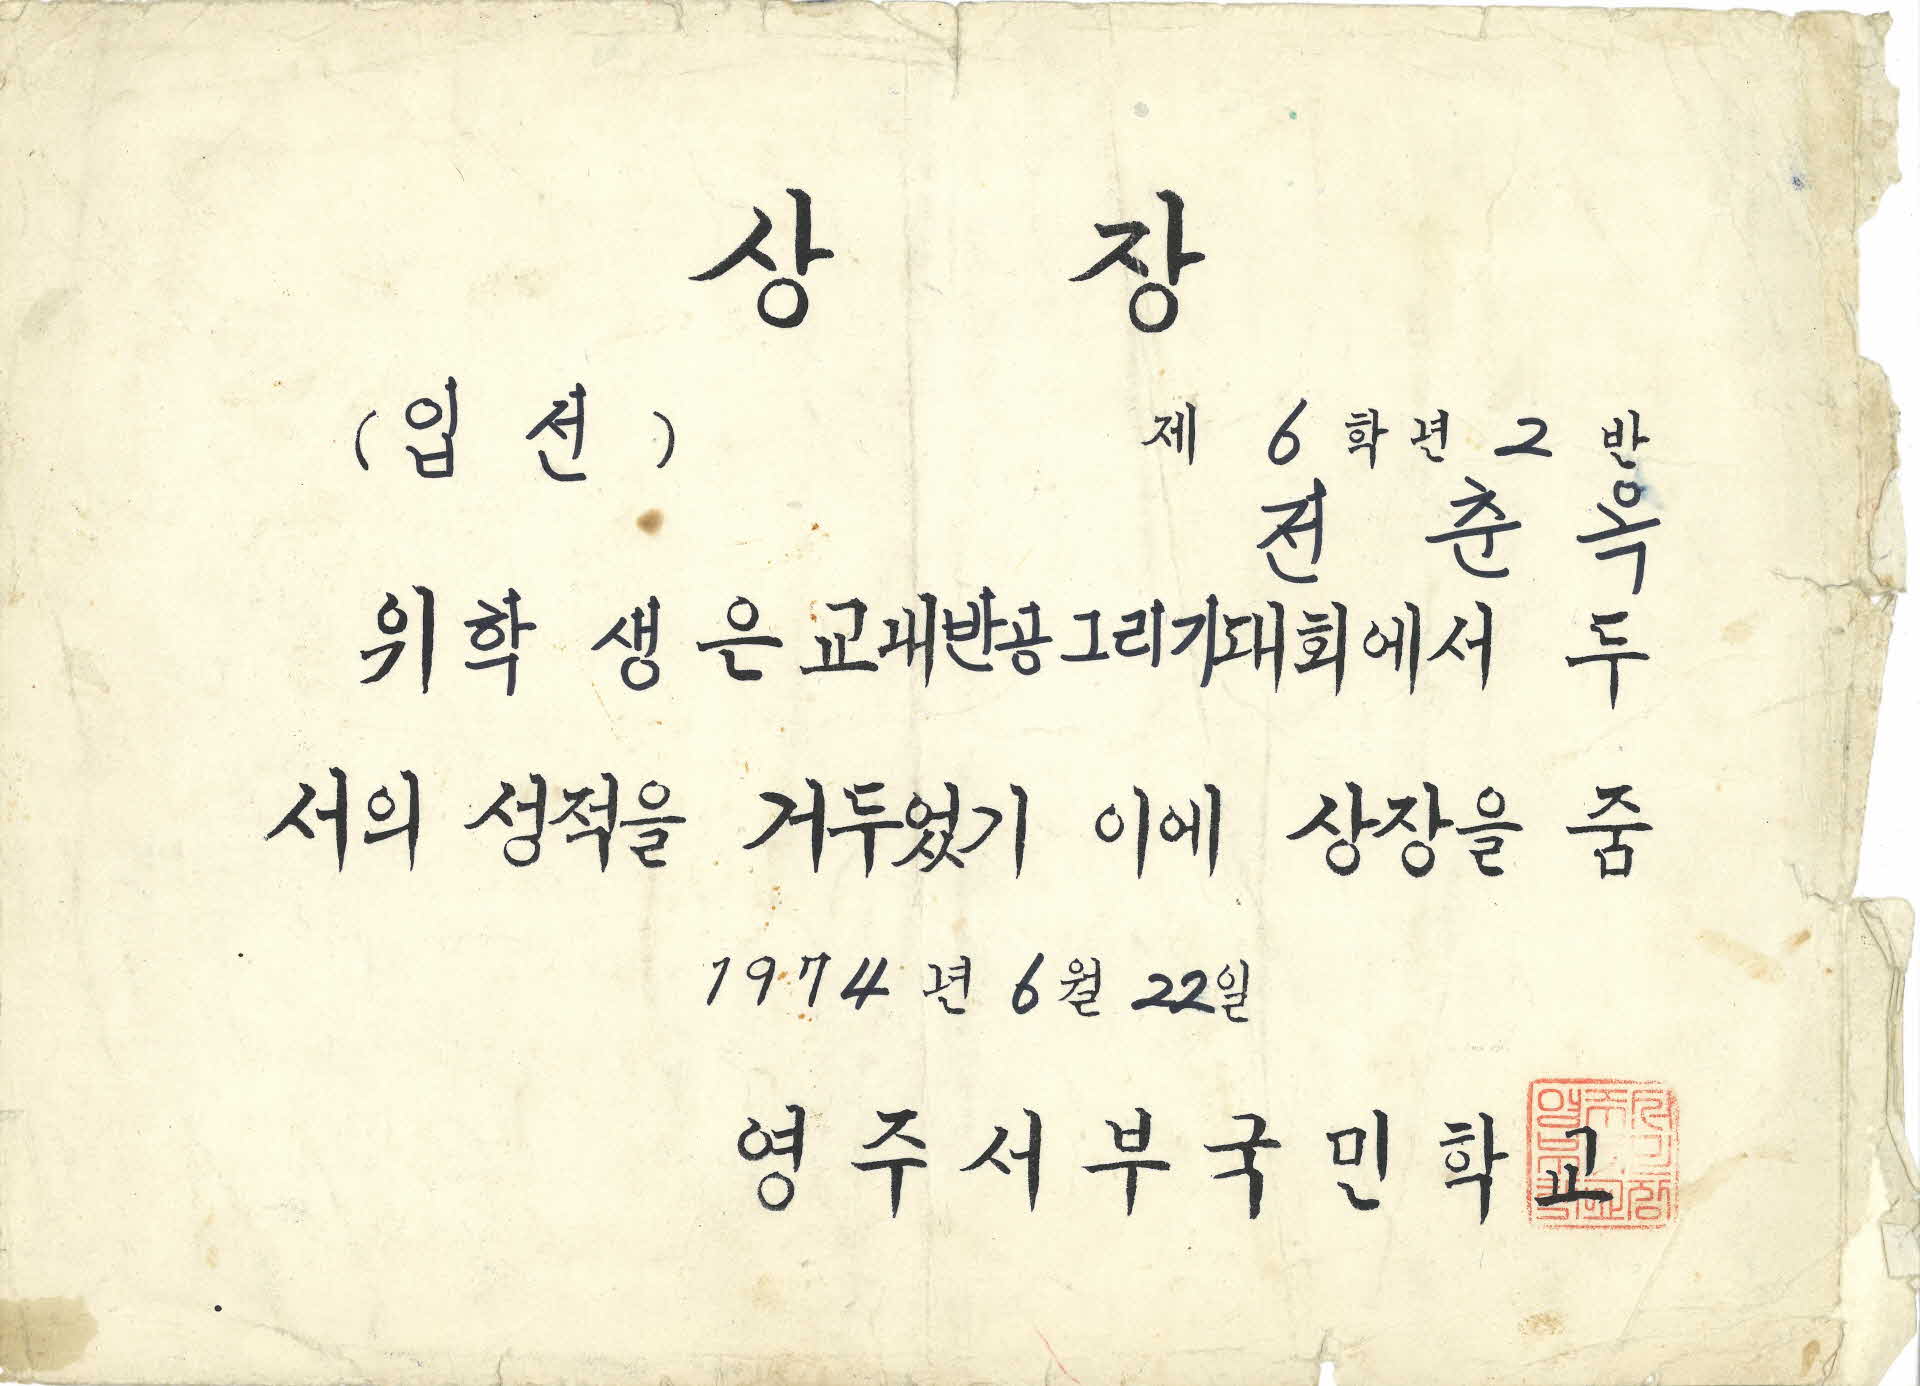 상 장
(입 선)
제 6 학년 2 반
전 춘 옥
위 학 생 은 교내반공그리기대회에서 두
서의 성적을 거두었기 이에 상장을 줌
1974 년 6 월 22일
영 주 서 부 국 민 학 교